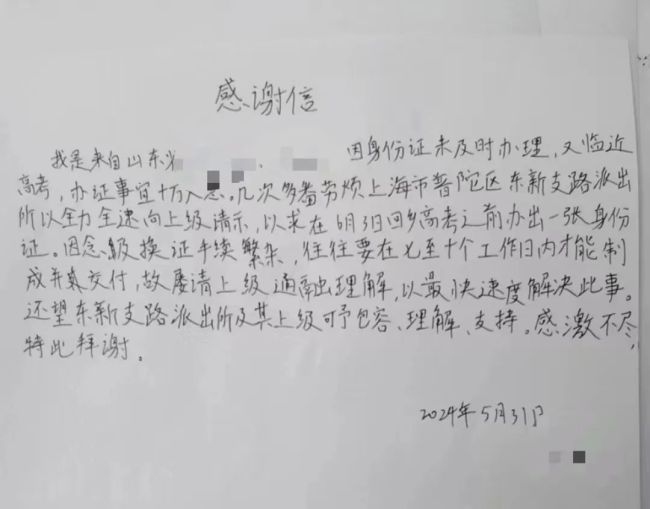 感谢信
我是来自山东 因身份证未及时办理，又临近
高考，办证事宜十万入急。几次多番劳烦上海市普陀区东新支路派出
所以全力全速向上级请示，以求在6月3日回乡高考之前办出一张身份
证。因急、级换证手续繁杂，往往要在七至十个工作日内才能制
成并交付，故屡请上级通融理解，以最快速度解决此事。
还望东新支路派出所及其上级可予包容、理解、支持。感激不尽，
特此拜谢。
2024年5月31日